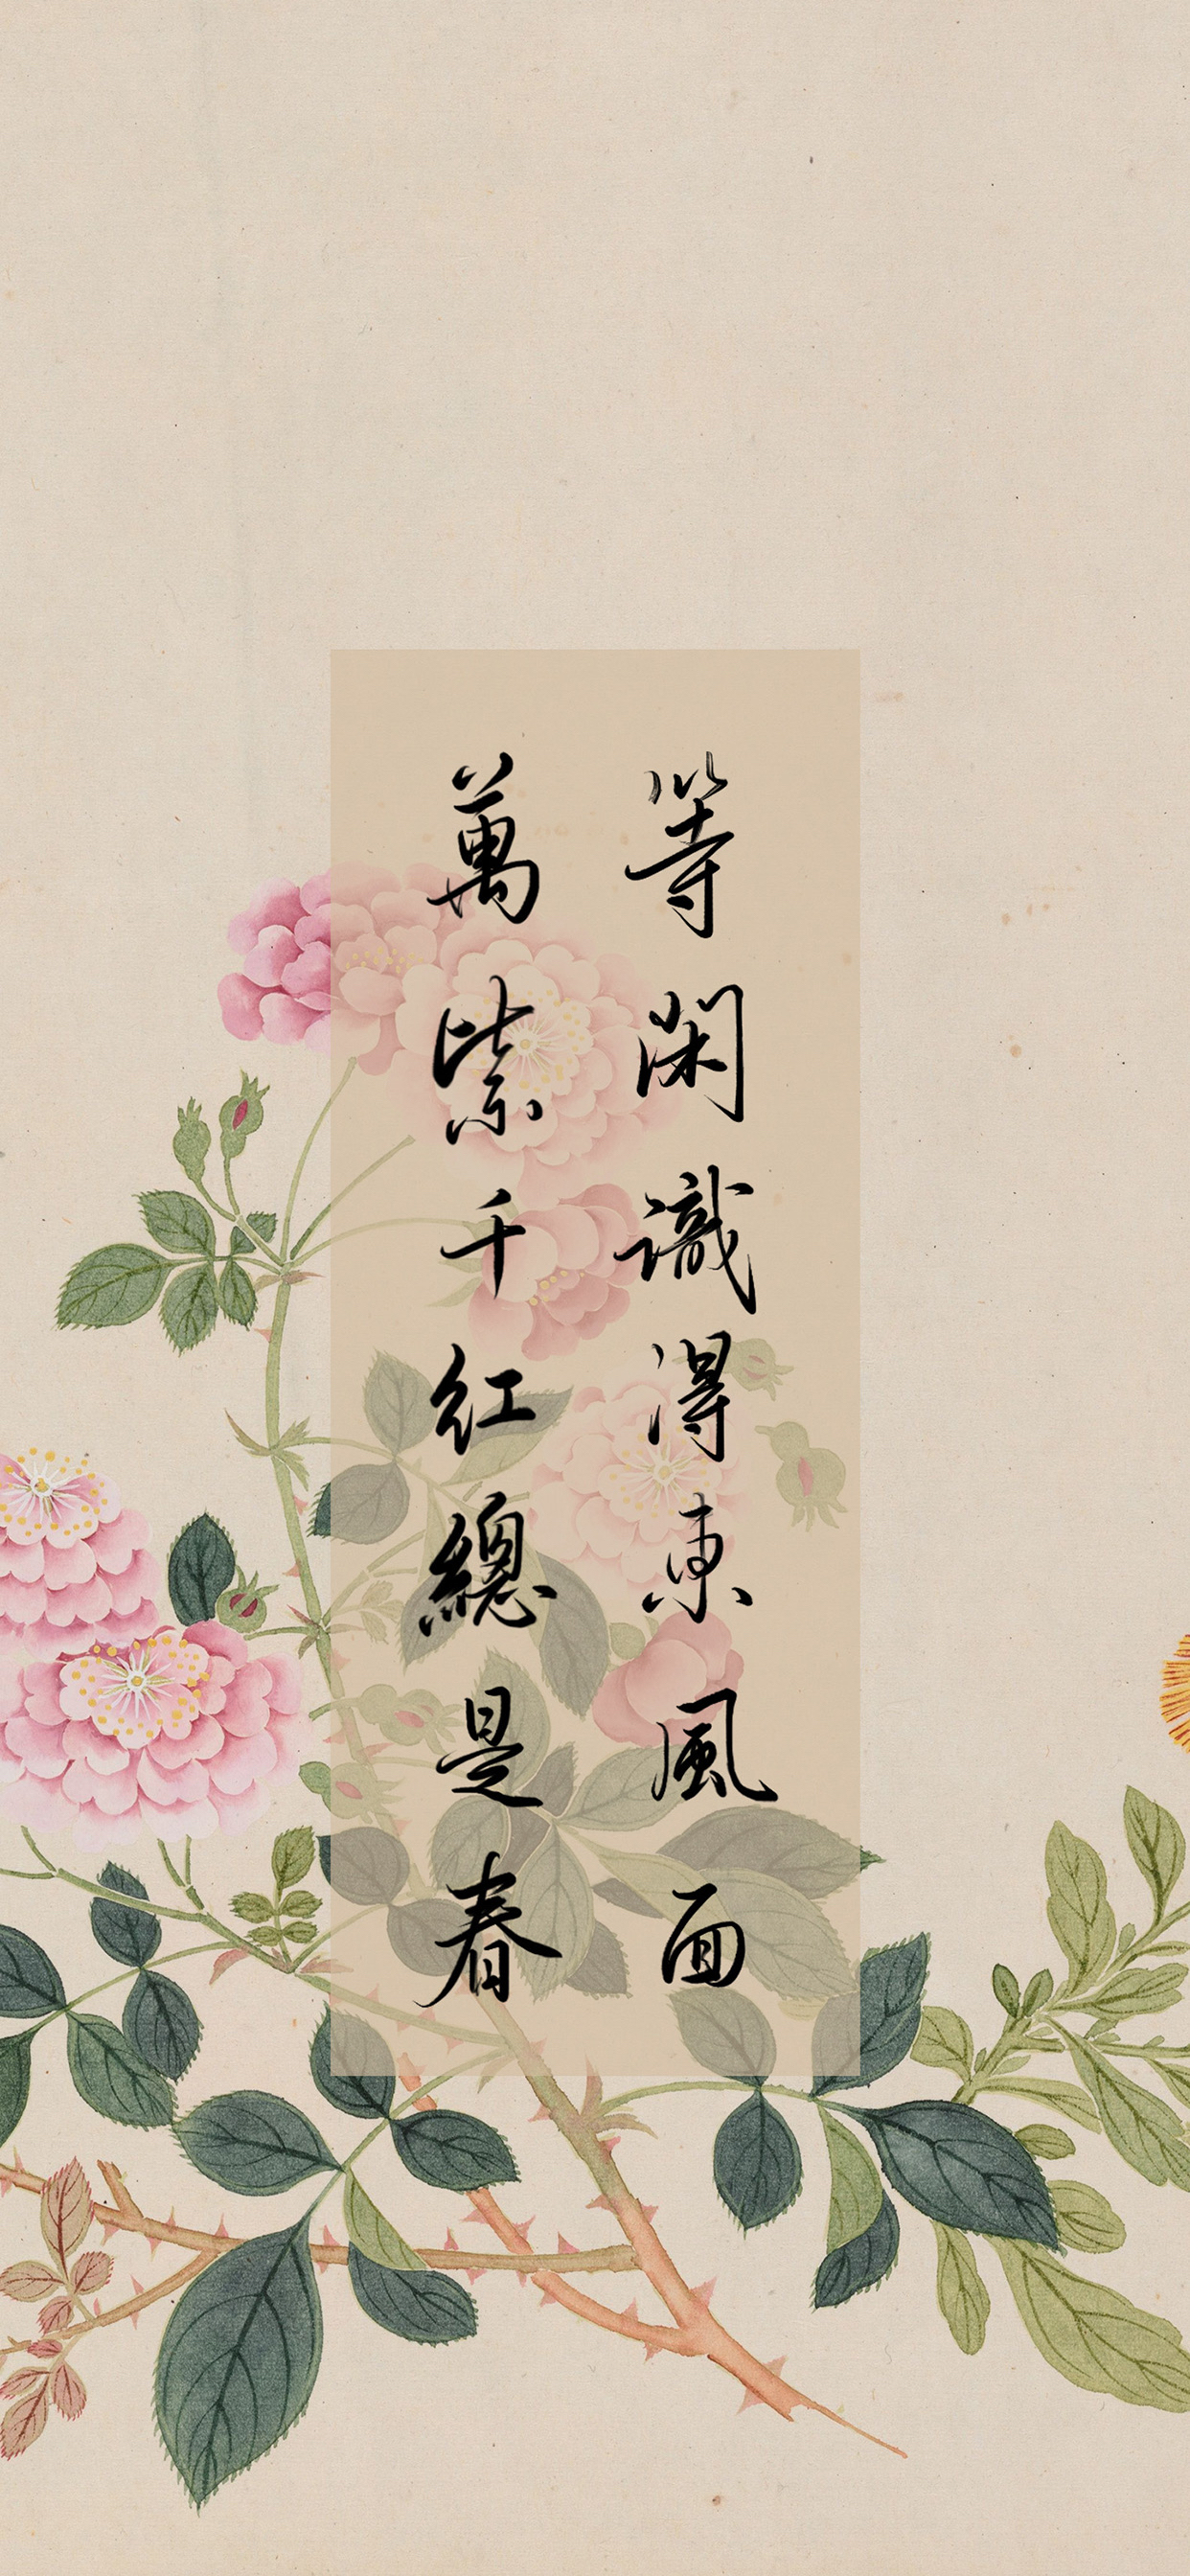 等閑識得東風面
萬紫千紅總是春